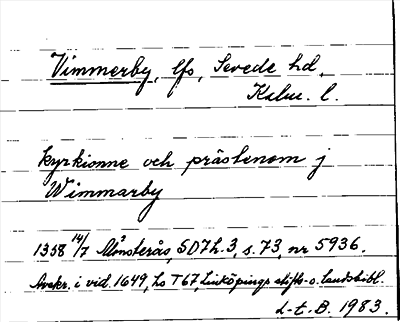 Vimmerby, lfs, Sevede hd,
Kalm. l.
kyrkionne och prästenom j
Wimmarby
1358 14/7 Mönsterås, SD 7 h. 3, s. 73, nr 5936.
Avskr. i vid. 1649, Ls T 67, Linköpings stifts- o. landsbibl.
L-t. B. 1983.